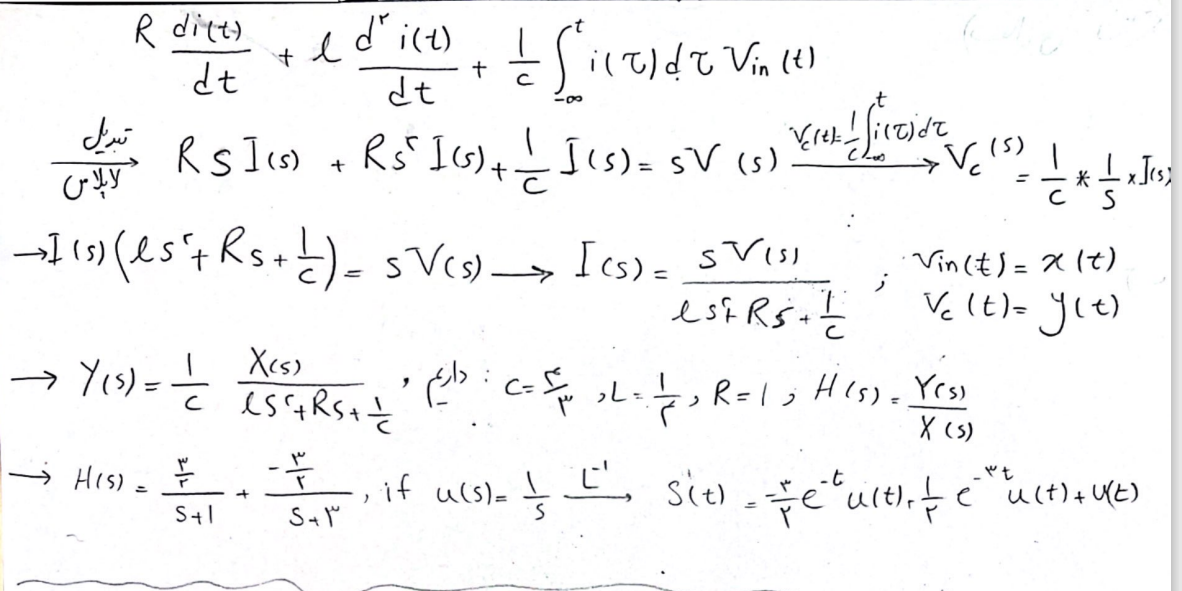 R di(t)/dt + l d^۲ i(t)/dt + 1/c ∫_{-∞}^{t} i(τ)dτ Vin (t)
تبدیل لاپلاس → R S I(s) + Rs^۲ I(s) + 1/c I(s) = sV (s) → Vc(t)= 1/c ∫_{-∞}^{t} i(τ)dτ → Vc(s) = 1/c * 1/s × I(s)
→ I(s) (ls^۲ + Rs + 1/c) = sV(s) → I(s) = sV(s) / (ls^۲ + Rs + 1/c) ; Vin(t) = x(t)
Vc(t) = y(t)
→ Y(s) = 1/c X(s) / (ls^۲ + Rs + 1/c) , داریم : C= ۴/۳ , L= 1/۴ , R=1 , H(s) = Y(s)/X(s)
→ H(s) = (۳/۲)/(s+1) + (-۳/۲)/(s+۳) , if u(s) = 1/s L^-1 → S(t) = -۳/۲ e^-t u(t) + 1/۲ e^-۳t u(t) + u(t)